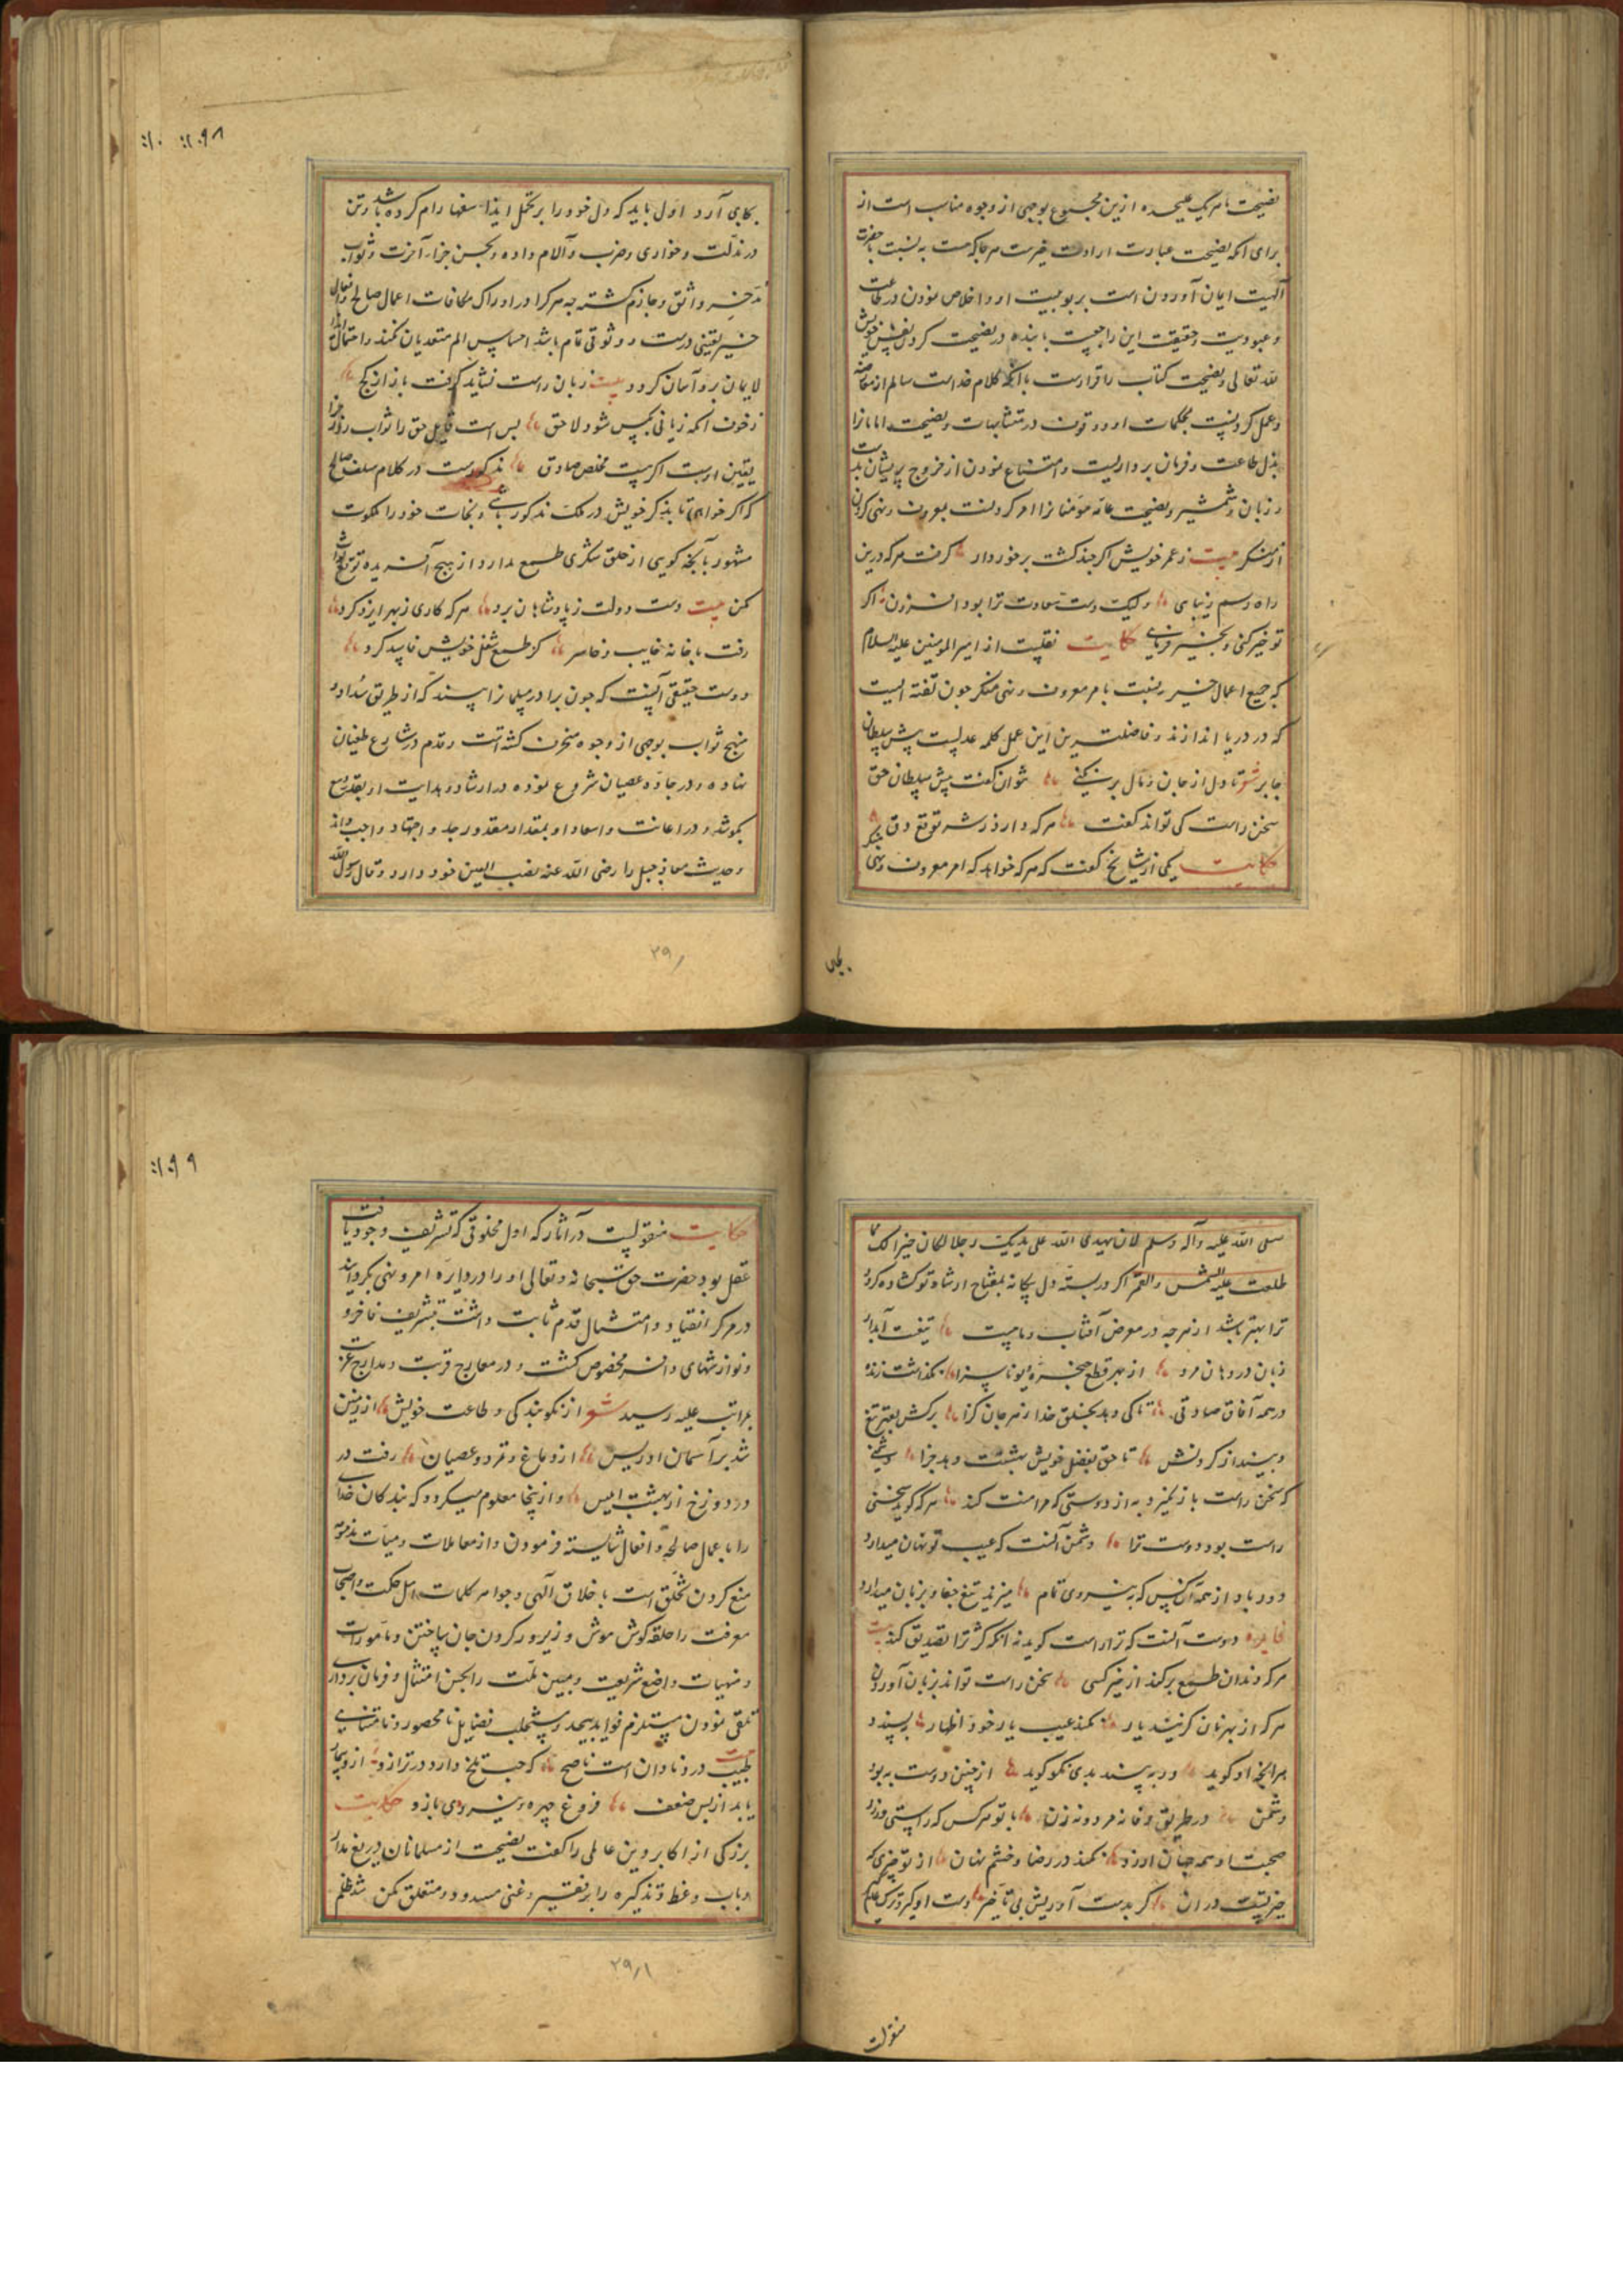 نصیحت با هر یک علیحده ازین مجموع بوجهی از وجوه مناسب است از
برای آنکه نصیحت عبارت ارادت خیرست هر جا که هست به نسبت با حضرت
الهیت ایمان آوردن است بربوبیت او و اخلاص نمودن در طاعت
و عبودیت و حقیقت این راجعیست با بنده در نصیحت کردن نفس خویش
لله تعالی و نصیحت کتاب را قرارست باآنکه کلام خداست سالم از معارضه
و عمل کردنیست بمحکمات او و وقوف در متشابهات و نصیحت امامانرا
بذل طاعت و فرمان برداریست و امتناع نمودن از خروج بریشان بدست
و زبان و شمشیر و نصیحت عامه مومنانرا امر کردنست بمعروف و نهی کردن
از منکر بیت ز عمر خویش اگر چند گشت برخوردار گرفت هر که درین
راه رسم زیبایی ولیک دست سعادت ترا بود افزون اگر
تو خیر کنی و بخیر فرمایی حکایت نقلیست از امیرالمومنین علیه السلام
که جمیع اعمال خیر بنسبت با مر معروف و نهی منکر چون تفته ایست
که در دریا اندازند و فاضلترین این عمل کلمه عدلیست پیش سلطان
جابر شعر تا دل از جان و مال بر نکنی نتوان گفت پیش سلطان حق
سخن راست کی تواند گفت هر که دارد ز شه توقع دق
حکایت یکی از مشایخ گفت که هر که خواهد که امر معروف و نهی منکر
بجای
۱۰ ۱۰۹۸
بجای آرد اول باید که دل خود را بر تحمل ایذاء سفها رام کرده باشد و تن
در مذلت و خواری و ضرب و آلام داده و بحسن جزاء آخرت و ثواب
مدخر واثق و جازم گشته چه هر کرا در ادراک مکافات اعمال صالح و افعال
خیر یقینی درست و وثوقی تمام باشد احساس الم متعدیان نکند و احتمال ایذاء
لایمان برو آسان گردد بیت زبان راست نشاید گرفت باز از کج
ز خوف آنکه زیانی بکس شود لاحق بس است قایل حق را ثواب روز جزا
یقین اوست اگر هست مخلص صادق مذکورست در کلام سلف صالح
که اگر خواهی تا بذکر خویش در ملک مذکور باشی و بنجات خود را ملکوت
مشهور بآنچه گویی از خلق شکری طمع مدار و از هیچ آفریده توقع ثواب
مکن بیت دست دولت ز پادشاهان برد هر که کاری ز بهر ایزد کرد
رفت با خانه خایب و خاسر کز طمع شغل خویش فاسد کرد
دوست حقیقی آنست که چون برادر مسلمانرا بیند که از طریق سداد و
منهج ثواب بوجهی از وجوه منحرف گشته است و قدم در شارع طغیان
نهاده و در جاده عصیان شروع نموده در ارشاد و هدایت او بقدر وسع
بکوشد و در اعانت و اسعاد او بمقدار مقدور جد و اجتهاد واجب داند
و حدیث معاذ جبل را رضی الله عنه نصب العین خود دارد و قال رسول الله
۲۹۰
صلی الله علیه و آله وسلم لان یهدی الله علی یدیک رجلا لکان خیرا لک مما
طلعت علیه الشمس والقمر اگر در بسته دل بیگانه بمفتاح ارشاد تو گشاده گردد
ترا بهتر باشد از هر چه در معرض آفتاب و ماهست تیغیست آبدار
زبان در دهان مرد از بهر قطع حنجره هر ناسزا نگذاشت زنده
در همه آفاق صادقی تا کی دهد بخلق خدا زهر جان گزا برکش بقهر تیغ
و بینداز گردنش تا حق بفضل خویش بهشتت دهد جزا دشمنی
که سخن راست باز نگیرد به از دوستی که مداهنت کند هر که گوید سخنی
راست بود دوست ترا دشمن آنست که عیب تو نهان میدارد
دور باد از همه آن کس که به نیروی تمام میزند تیغ جفا و بزبان میدارد
فایده دوست آنست که ترا راست گوید نه آنکه کژ ترا تصدیق کند بیت
هر که دندان طمع برکند از خیر کسی سخن راست تواند بزبان آوردن
هر که از بهر نان گزیند یار نکند عیب یار خود اظهار بپسندد
هر آنچه او گوید ور به بیند بدی نکو گوید از چنین دوست به بود
دشمن در طریق وفا نه مرد و نه زن با تو هر کس که راستی ورزد
صحبت او همه جهان ارزد نکند در رضا و خشم نهان از تو چیزی که
خیر تست در آن گر بدست آوریش بی تأخیر دست او گیر و ترک عالم گیر
منقولست
۱۰۹۹
حکایت منقولیست در آثار که اول مخلوقی که تشریف وجود یافت
عقل بود حضرت حق سبحانه و تعالی او را در دایره امر و نهی بگردانید
در مرکز انقیاد و امتثال قدم ثابت داشت بتشریف فاخر و
و نوازشهای وافر مخصوص گشت و در معارج قربت و مدارج عزت
بمراتب علیه رسید شعر از نکو بندگی و طاعت خویش از زمین
شد بر آسمان ادریس از دماغ و تمرد و عصیان رفت در
در دوزخ از بهشت ابلیس و ازینجا معلوم میگردد که بندگان خدای
را باعمال صالحه و افعال شایسته فرمودن و از معاملات و هیئات مذمومه
منع کردن تخلق است باخلاق الهی و جواهر کلمات اهل حکمت و اصحاب
معرفت را حلقه گوش هوش و زیور گردن جان ساختن و مامورات
و منهیات واضع شریعت و مبین ملت را بحسن امتثال و فرمان برداری
تلقی نمودن مستلزم فواید بیحد و مستجلب فضایل نامحصور و نامتناهی
طبیب درد نادان است ناصح که حب تلخ دارد در ترازو ازو بیمار
یابد از پس ضعف فروغ چهره و نیروی بازو حکایت
بزرگی از اکابر دین عاملی را گفت نصیحت از مسلمانان دریغ مدار
و باب وعظ و تذکیره را بر فقیر و غنی مسدود و متعلق مکن شد ظلم
۲۹۱